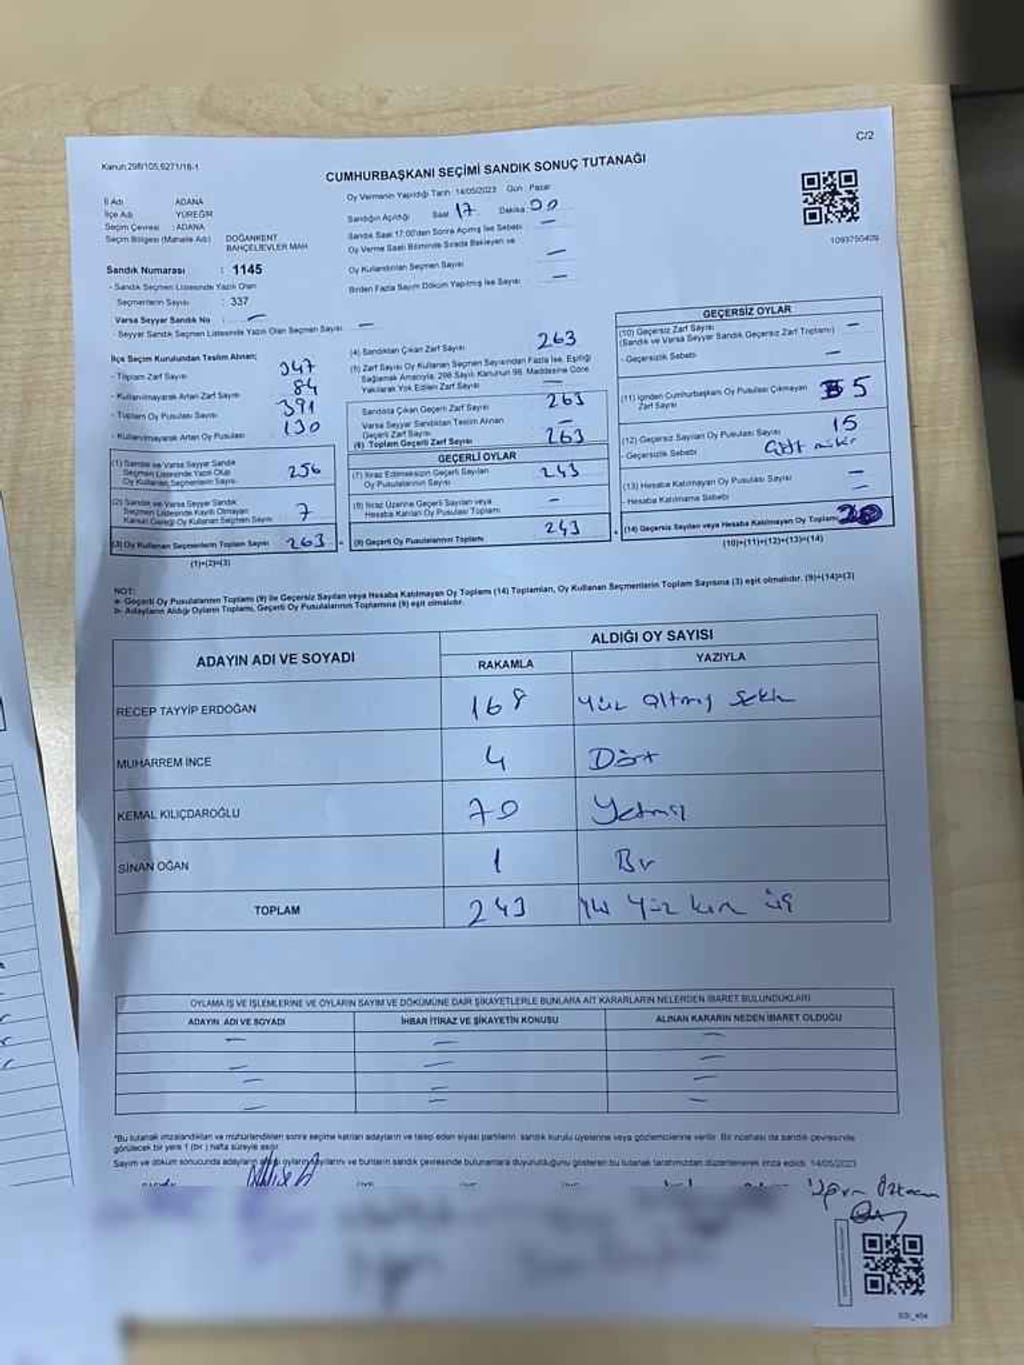 C/2
Kanun:298/105,6271/16-1
CUMHURBAŞKANI SEÇİMİ SANDIK SONUÇ TUTANAĞI
İl Adı ADANA
İlçe Adı YÜREĞİR
Seçim Çevresi : ADANA
Seçim Bölgesi (Mahalle Adı) DOĞANKENT
BAHÇELİEVLER MAH
Sandık Numarası : 1145
- Sandık Seçmen Listesinde Yazılı Olan
Seçmenlerin Sayısı : 337
Varsa Seyyar Sandık No : —
- Seyyar Sandık Seçmen Listesinde Yazılı Olan Seçmen Sayısı —
Oy Vermenin Yapıldığı Tarih: 14/05/2023 Gün: Pazar
Sandığın Açıldığı Saat 17 Dakika: 00
Sandık Saat 17:00'den Sonra Açılmış İse Sebebi —
Oy Verme Saati Bitiminde Sırada Bekleyen ve
Oy Kullandırılan Seçmen Sayısı —
Birden Fazla Sayım Döküm Yapılmış İse Sayısı —
1093750409
İlçe Seçim Kurulundan Teslim Alınan;
- Toplam Zarf Sayısı 347
- Kullanılmayarak Artan Zarf Sayısı 84
- Toplam Oy Pusulası Sayısı 391
- Kullanılmayarak Artan Oy Pusulası 130
(1) Sandık ve Varsa Seyyar Sandık
Seçmen Listesinde Yazılı Olup
Oy Kullanan Seçmenlerin Sayısı 256
(2) Sandık ve Varsa Seyyar Sandık
Seçmen Listesinde Kayıtlı Olmayan
Kanun Gereği Oy Kullanan Seçmen Sayısı 7
(3) Oy Kullanan Seçmenlerin Toplam Sayısı 263
(1)+(2)=(3)
(4) Sandıktan Çıkan Zarf Sayısı 263
(5) Zarf Sayısı Oy Kullanan Seçmen Sayısından Fazla İse, Eşitliği
Sağlamak Amacıyla, 298 Sayılı Kanunun 98. Maddesine Göre
Yakılarak Yok Edilen Zarf Sayısı —
Sandıkta Çıkan Geçerli Zarf Sayısı 263
Varsa Seyyar Sandıktan Teslim Alınan
Geçerli Zarf Sayısı —
(6) Toplam Geçerli Zarf Sayısı 263
GEÇERLİ OYLAR
(7) İtiraz Edilmeksizin Geçerli Sayılan
Oy Pusulalarının Sayısı 243
(8) İtiraz Üzerine Geçerli Sayılan veya
Hesaba Katılan Oy Pusulası Toplamı —
(9) Geçerli Oy Pusulalarının Toplamı 243
GEÇERSİZ OYLAR
(10) Geçersiz Zarf Sayısı
(Sandık ve Varsa Seyyar Sandık Geçersiz Zarf Toplamı) —
- Geçersizlik Sebebi —
(11) İçinden Cumhurbaşkanı Oy Pusulası Çıkmayan
Zarf Sayısı 5
(12) Geçersiz Sayılan Oy Pusulası Sayısı 15
- Geçersizlik Sebebi
(13) Hesaba Katılmayan Oy Pusulası Sayısı —
- Hesaba Katılmama Sebebi —
(14) Geçersiz Sayılan veya Hesaba Katılmayan Oy Toplamı 20
(10)+(11)+(12)+(13)=(14)
NOT:
a- Geçerli Oy Pusulalarının Toplamı (9) ile Geçersiz Sayılan veya Hesaba Katılmayan Oy Toplamı (14) Toplamları, Oy Kullanan Seçmenlerin Toplam Sayısına (3) eşit olmalıdır. (9)+(14)=(3)
b- Adayların Aldığı Oyların Toplamı, Geçerli Oy Pusulalarının Toplamına (9) eşit olmalıdır.
ADAYIN ADI VE SOYADI ALDIĞI OY SAYISI
RAKAMLA YAZIYLA
RECEP TAYYİP ERDOĞAN 168 Yüz Altmış Sekiz
MUHARREM İNCE 4 Dört
KEMAL KILIÇDAROĞLU 70 Yetmiş
SİNAN OĞAN 1 Bir
TOPLAM 243 İki Yüz kırk üç
OYLAMA İŞ VE İŞLEMLERİNE VE OYLARIN SAYIM VE DÖKÜMÜNE DAİR ŞİKAYETLERLE BUNLARA AİT KARARLARIN NELERDEN İBARET BULUNDUKLARI
ADAYIN ADI VE SOYADI İHBAR İTİRAZ VE ŞİKAYETİN KONUSU ALINAN KARARIN NEDEN İBARET OLDUĞU
— — —
— — —
— — —
— — —
*Bu tutanak imzalandıktan ve mühürlendikten sonra seçime katılan adayların ve talep eden siyasi partilerin sandık kurulu üyelerine veya gözlemcilerine verilir. Bir nüshası da sandık çevresinde
görülecek bir yere 1 (bir) hafta süreyle asılır.
Sayım ve döküm sonucunda adayların aldığı oyların sayılarını ve bunların sandık çevresinde bulunanlara duyurulduğunu gösteren bu tutanak tarafımızdan düzenlenerek imza edildi. 14/05/2023